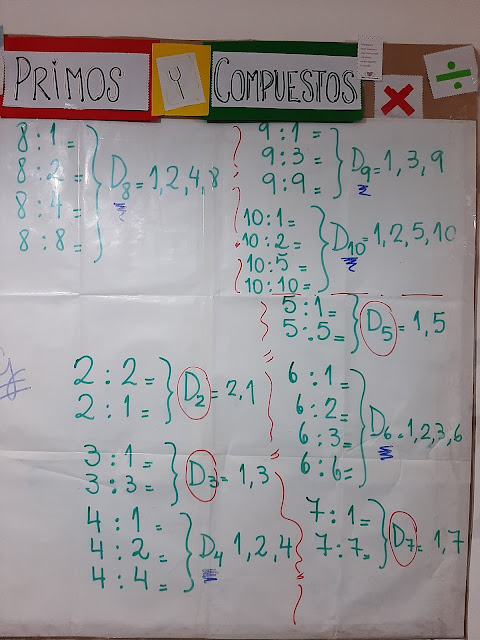 PRIMOS Y COMPUESTOS
8:1=
8:2=
8:4=
8:8=
D8=1,2,4,8
9:1=
9:3=
9:9=
D9=1,3,9
10:1=
10:2=
10:5=
10:10=
D10=1,2,5,10
5:1=
5:5=
D5=1,5
2:2=
2:1=
D2=2,1
6:1=
6:2=
6:3=
6:6=
D6=1,2,3,6
3:1=
3:3=
D3=1,3
4:1=
4:2=
4:4=
D4 1,2,4
7:1=
7:7=
D7=1,7